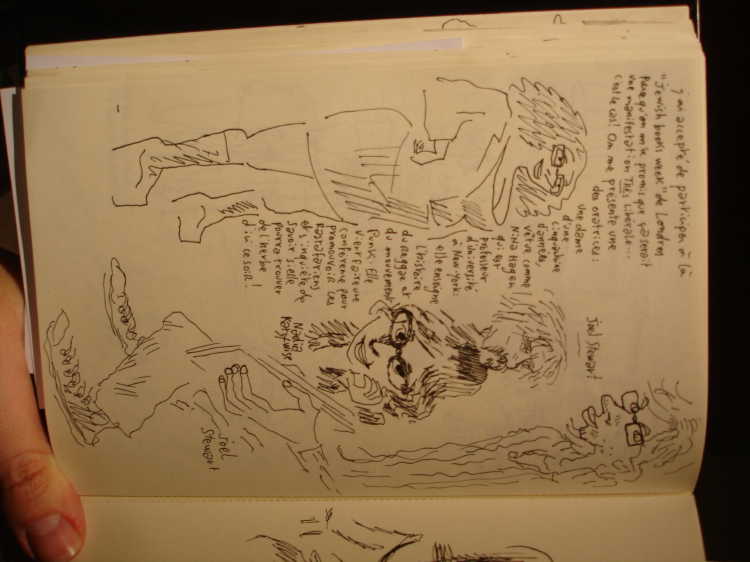 j'ai accepté de participer à la
"Jewish book's week" de Londres
parce qu'on m'a promis que ça serait
une manifestation TRÈS libérale...
c'est le cas! On me présente une
des oratrices:
une dame
d'une
cinquantaine
d'années,
vêtue comme
Nina Hagen
qui est
professeur
d'université
à New-York.
elle enseigne
l'histoire
du Reggae et
du mouvement
Punk. Elle
vient faire une
conférence pour
promouvoir les
Rastafariens
et s'inquiète de
savoir si elle
pourra trouver
de l'herbe
d'ici ce soir!
Joel Stewart
Nadia
Joel
Stewart